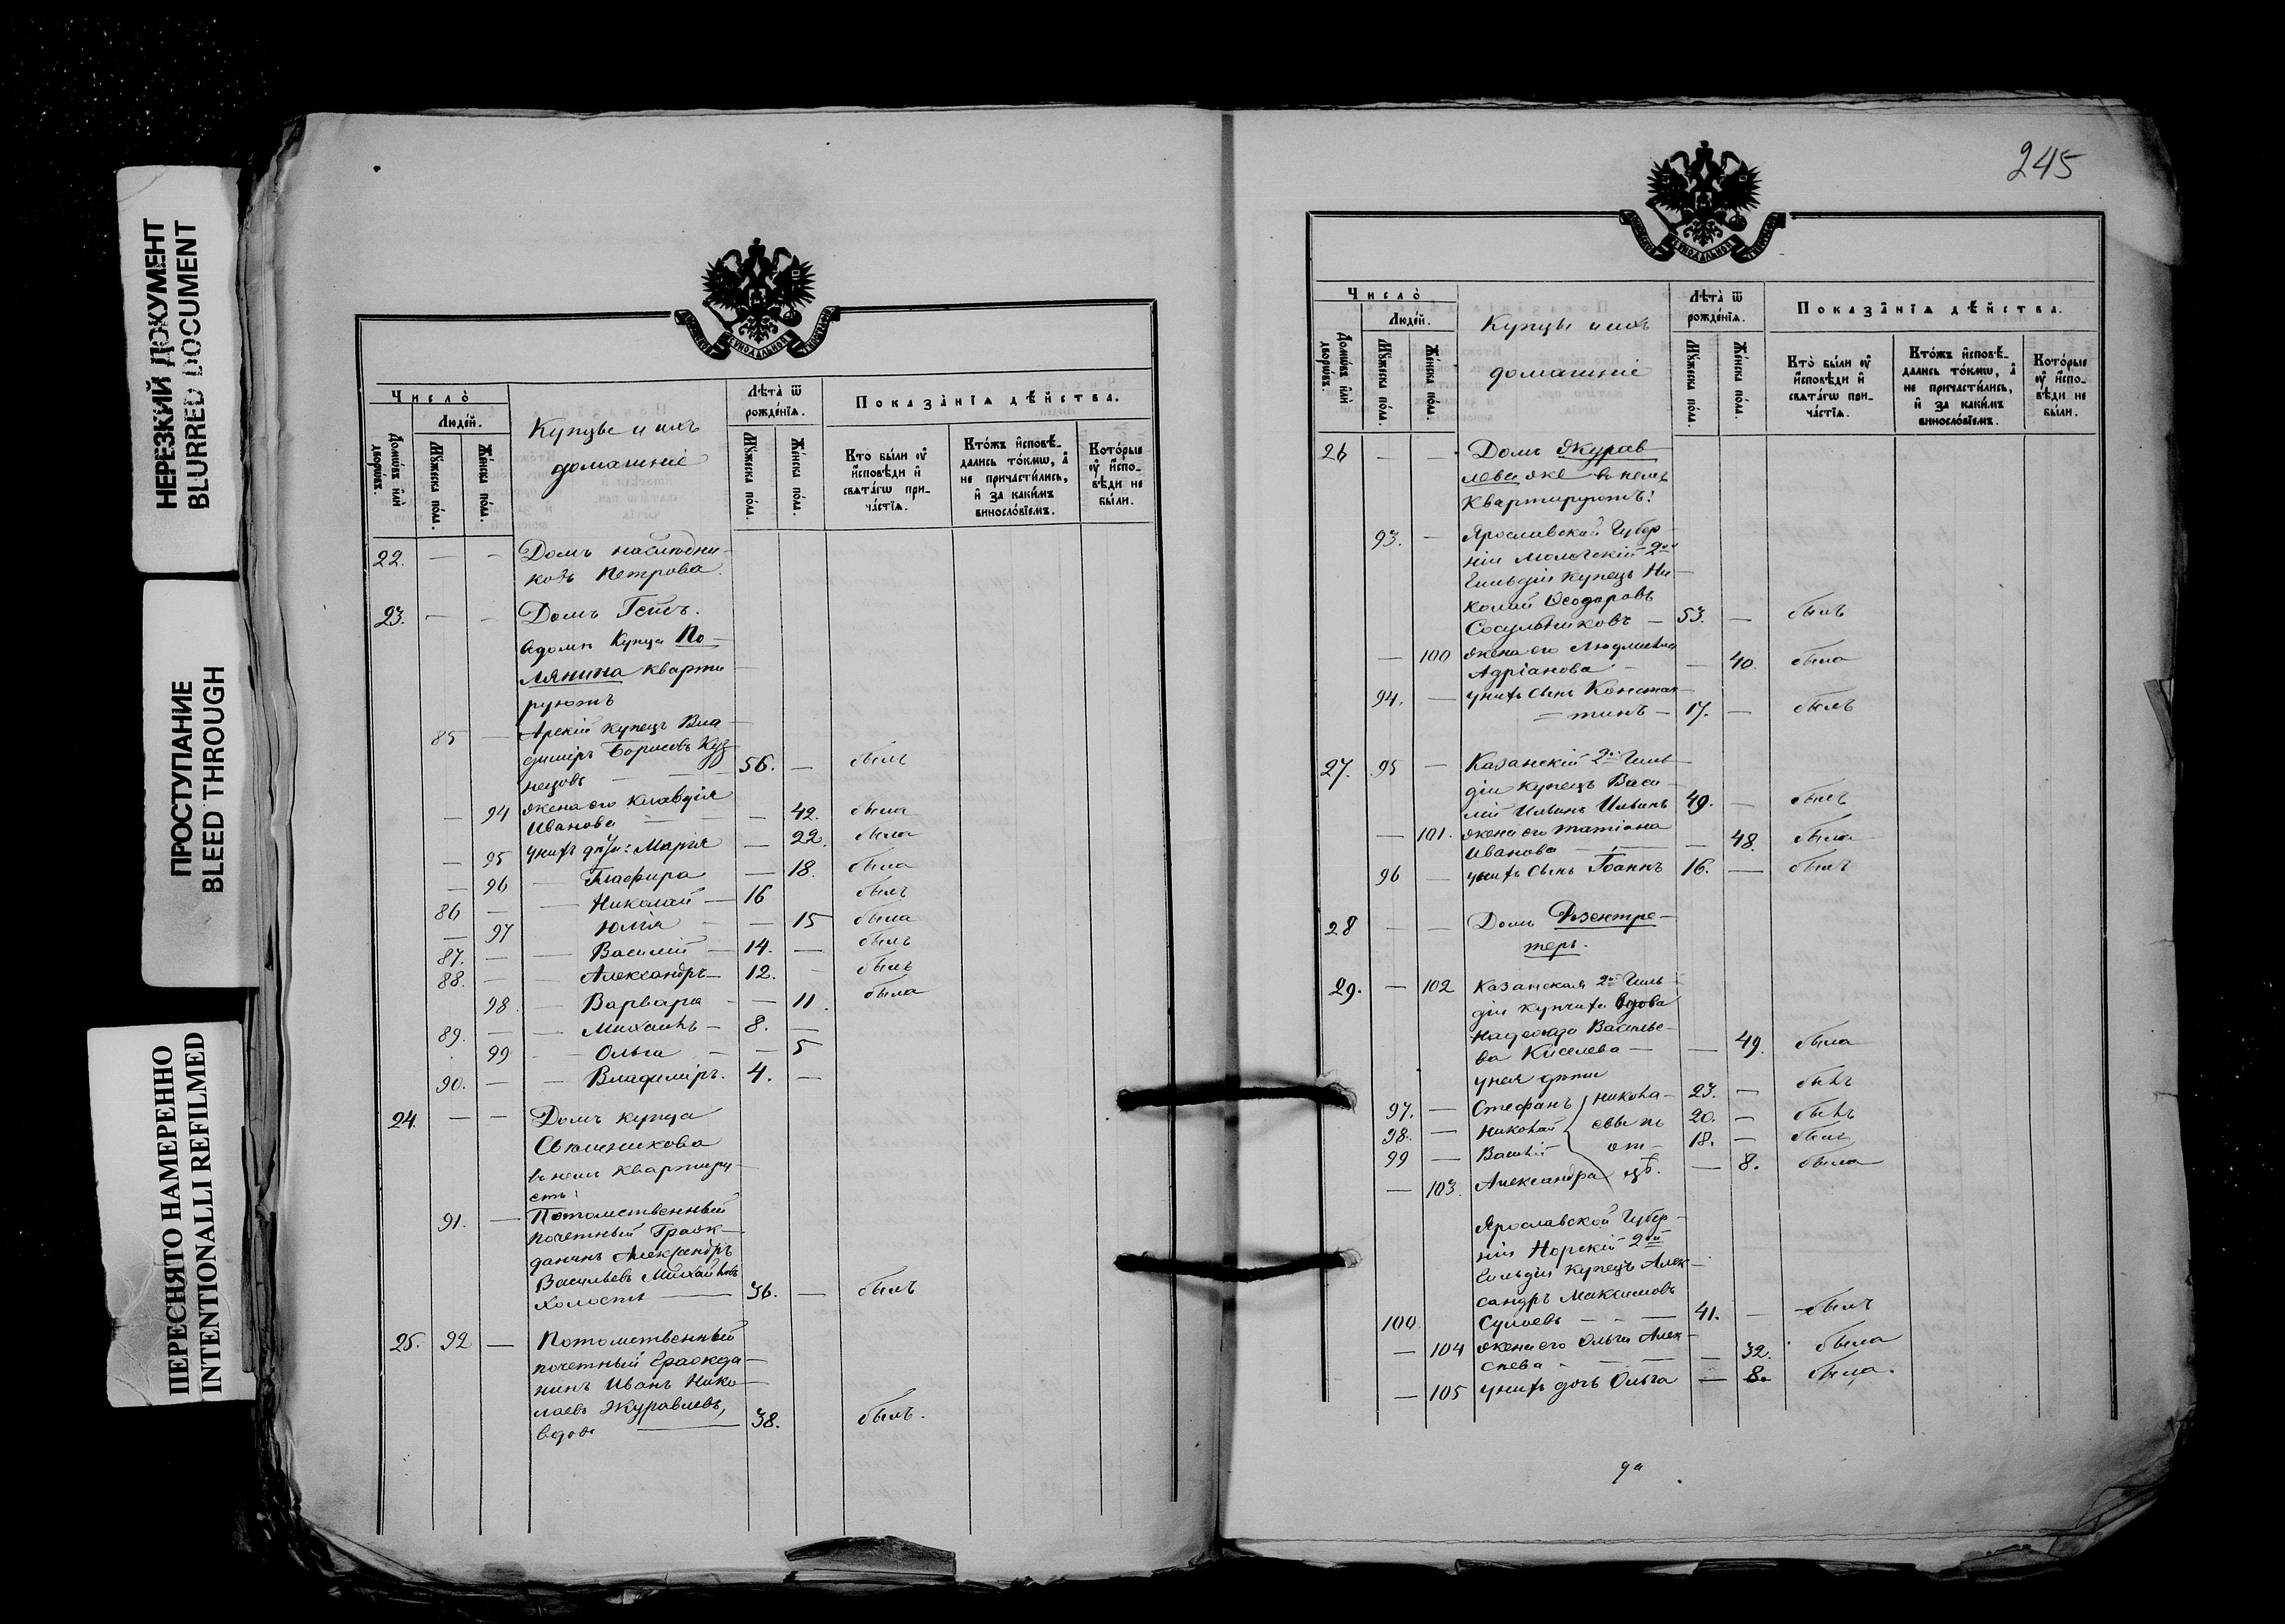 НЕРЕЗКИЙ ДОКУМЕНТ
BLURRED DOCUMENT
ПРОСТУПАНИЕ
BLEED THROUGH
ПЕРЕСНЯТО НАМЕРЕННО
INTENTIONALLI REFILMED
Число̀
Людей.
Домѡвъ или дворѡвъ.
Мꙋжеска пола.
Женска пола.
Купцы и ихъ
домашніе
Лѣта ѿ
рожденїѧ.
Мꙋжеска пола.
Женска пола.
Показанїѧ дѣйства.
Кто были оу
исповѣди и
свѧтагѡ при-
частїѧ.
Ктожъ исповѣ-
дались токмѡ, а
не причастились,
и за какимъ
винословїемъ.
Которые
оу испо-
вѣди не
были.
22. — — Домъ наслѣдни-
ковъ Петрова.
23. — — Домъ Гейсъ.
Вдомѣ Купца По-
лянина кварти
руютъ
85 — Арскій купецъ Вла-
димиръ Борисовъ Куз-
нецовъ — 56. — былъ
— 94 жена его Клавдія
Иванова — — 42. была
— 95 унихъ дѣти: Марія — 22. была
— 96 — Глафира — 18. была
86 — — Николай — 16 былъ
— 97 Юлія — — 15 была
87. — — Василій — 14. — былъ
88. — — Александръ — 12. — былъ
98. — Варвара — — 11. была
89. — — Михаилъ — 8. —
99 — Ольга — — 5
90. — — Владиміръ. 4. —
24. — — Домъ купца
Свѣшникова
въ немъ квартиру-
етъ:
91. — Потомственный
почетный Граж-
данинъ Александръ
Васильевъ Михайловъ
холостъ — 36. — былъ
25. 92 — Потомственный
почетный Гражда-
нинъ Иванъ Нико-
лаевъ Журавлевъ,
вдовъ — 38. былъ.
245
Число̀
Людей.
Домѡвъ или дворѡвъ.
Мꙋжеска пола.
Женска пола.
Купцы и ихъ
домашніе
Лѣта ѿ
рожденїѧ.
Мꙋжеска пола.
Женска пола.
Показанїѧ дѣйства.
Кто были оу
исповѣди и
свѧтагѡ при-
частїѧ.
Ктожъ исповѣ-
дались токмѡ, а
не причастились,
и за какимъ
винословїемъ.
Которые
оу испо-
вѣди не
были.
26 — — Домъ Журав-
лева же въ немъ
Квартируютъ:
93. — Ярославской Губер-
ніи Мологскій 2й
Гильдіи купецъ Ни-
колай Ѳеодоровъ
Сосульниковъ — 53. — былъ
— 100 жена его Людмила
Адріанова — — 40. была
94. — унихъ сынъ Констан-
= тинъ — 17. — былъ
27. 95 — Казанскій 2й Гиль-
діи купецъ Васи-
лій Ильинъ Ильинъ 49. — былъ
— 101. жена его Татіана
Иванова — — 48. была
96 — унихъ сынъ Іоаннъ 16. — былъ
28 — — Домъ
29. — 102 Казанская 2й Гиль-
діи купчиха вдова
Надежда Василье-
ва Киселева — — 49. была
унея дѣти
97. — Стефанъ Никола- 23. — былъ
98. — Николай евы 20. — былъ
99 — Василій от- 18. — былъ
— 103. Александра цѣ. — 8. была
Ярославской Губер-
ніи Норскій 2ой
Гильдіи купецъ Алек-
сандръ Максимовъ
100 41. — былъ
— 104 жена его Ольга Алек-
сѣева — — 32. была
— 105 унихъ дочь Ольга — 8. была.